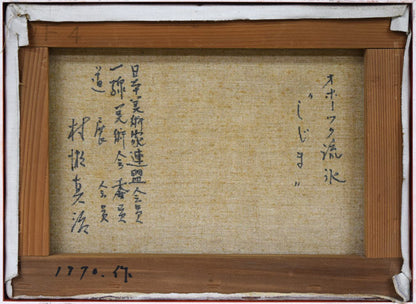 オホーツク流氷
"しじま"
日本美術家連盟会員
一線美術会委員
道展 会員
村瀬真治
1990.作